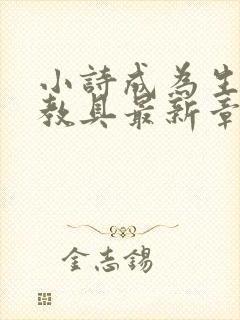 小詩成為生
教具最新章
金志錫